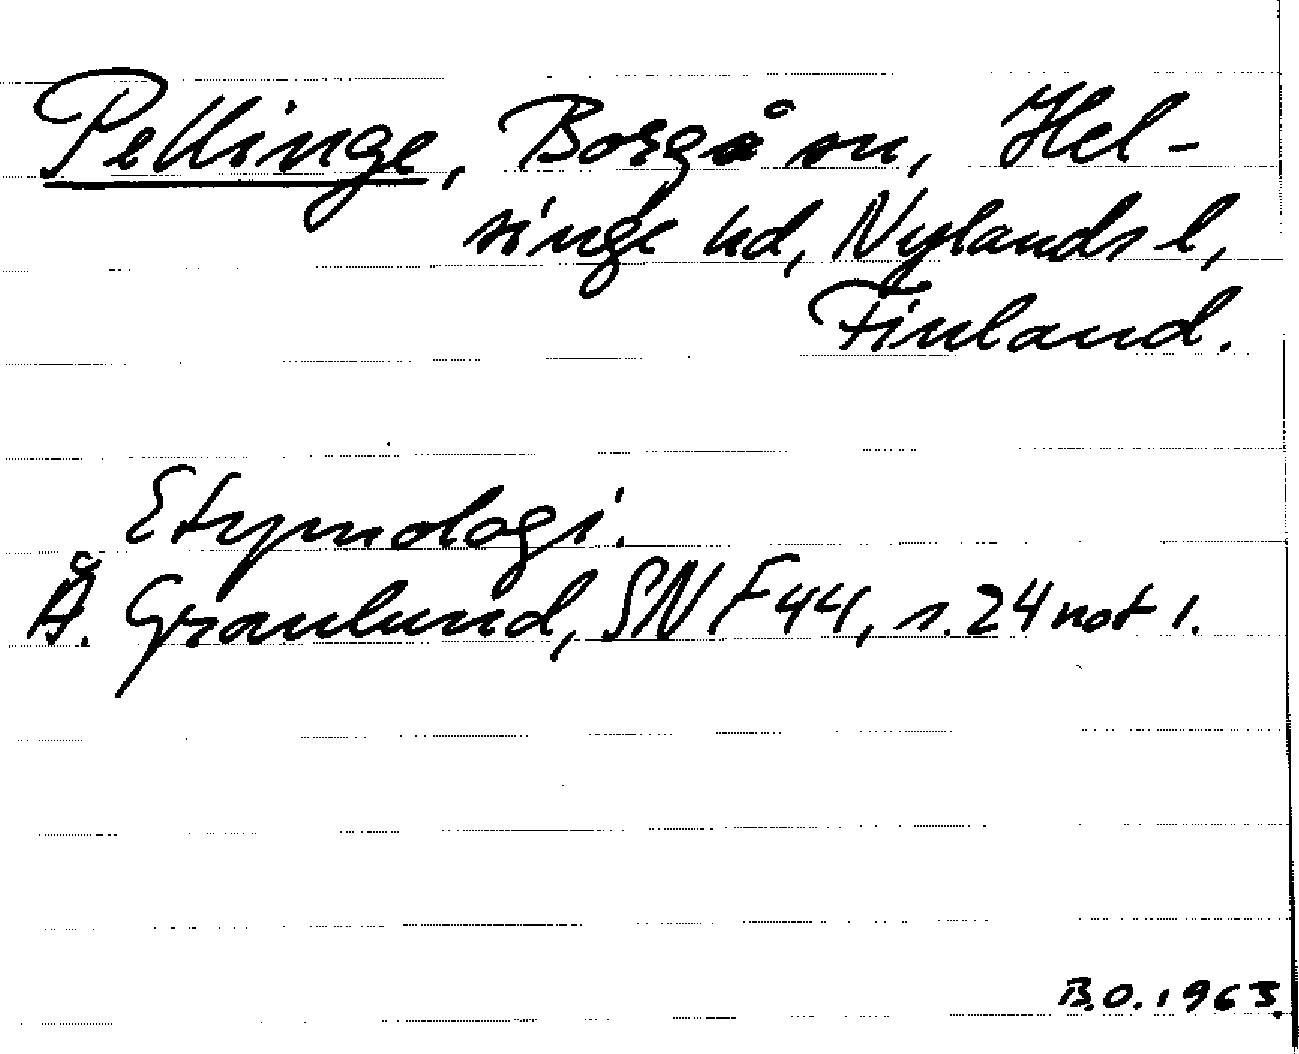 Pellinge, Borgå sn, Hel-
singe hd, Nylands l,
Finland.
Etymologi.
Å. Granlund, SNF 44, s. 24 not 1.
B.O. 1963.